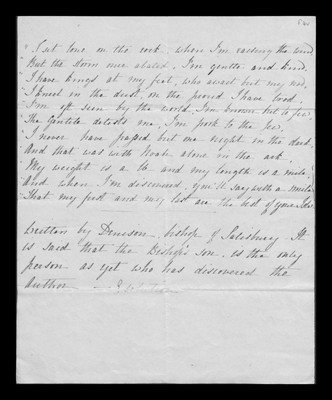 I sit lone on the rock, when I'm raising the wind
But the storm once abated, I'm gentle and kind,
I have kings at my feet, who await but my nod,
I kneel in the dust, on the proud I have trod.
I'm oft seen by the world, I'm known but to few
The Gentile detests me, I'm pork to the jew.
I never have passed but one night in the dark,
And that was with Noah alone in the ark.
My weight is a lb. and my length is a mile.
And when I'm discovered, you'll say with a smile
That my first and my last are the best of
Written by Denison, bishop of Salisbury. It
is said that the Bishop's son is the only
person as yet who has discovered the
author